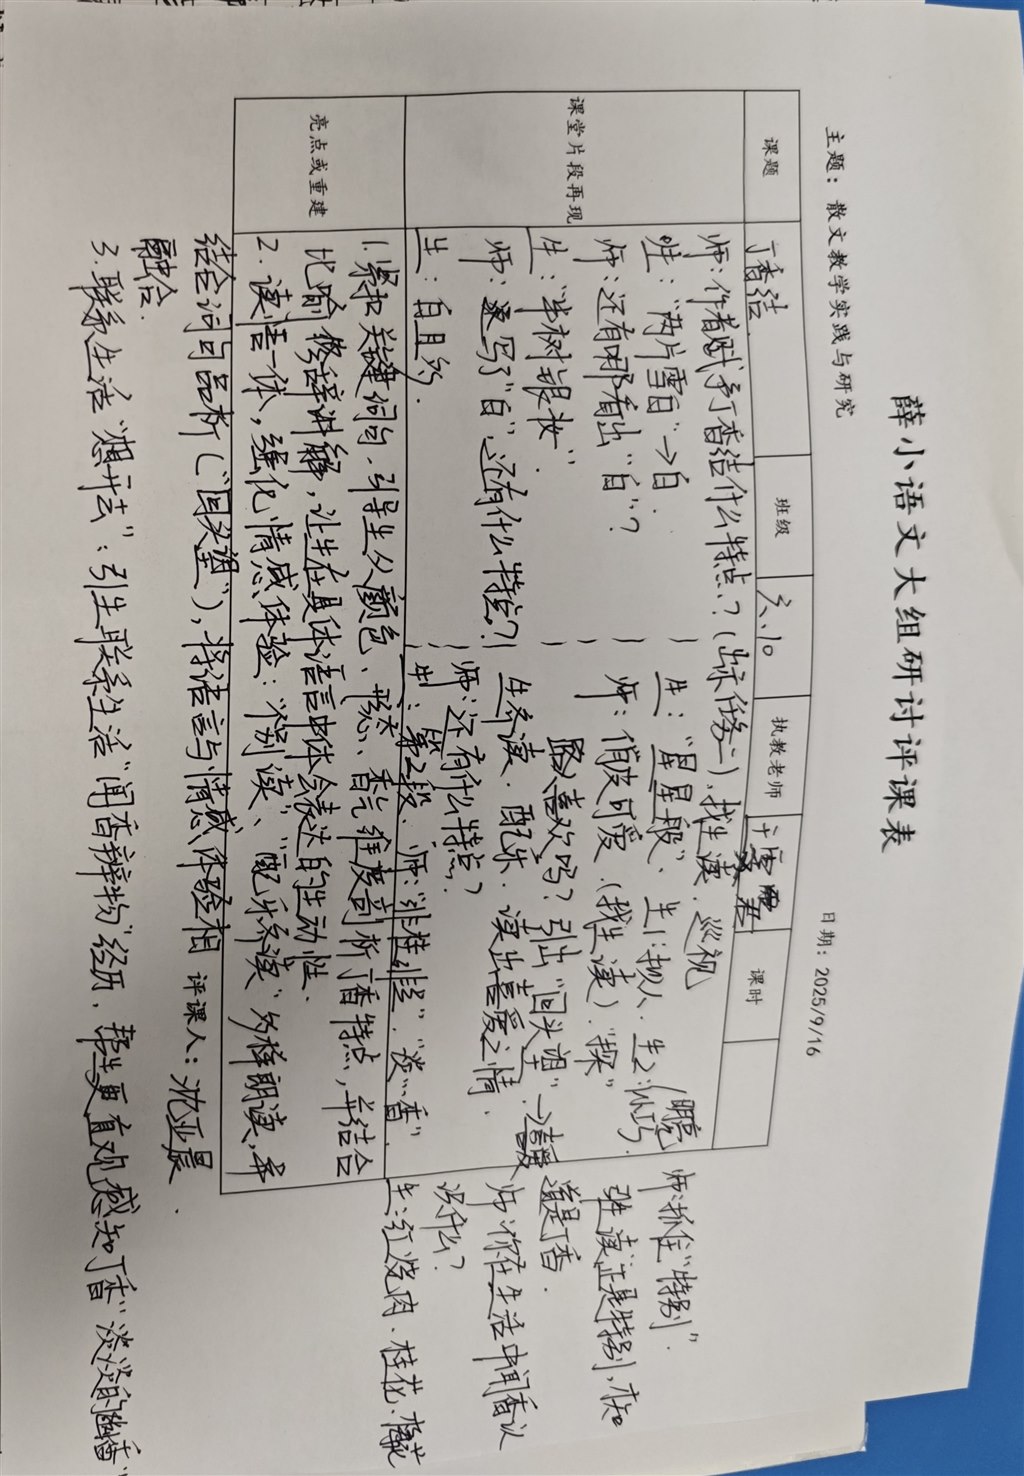 薛小语文大组研讨评课表
主题：散文教学实践与研究
日期：2025/9/16
课题
丁香结
班级
六.10
执教老师
课时
课堂片段再现
师：作者赋予丁香结什么特点？（出示任务二），找生读．巡视
生：“两片雪白”→白．
师：还有哪看出“白”？
生：“半树银妆”．
师：逐写了“白”，还有什么特点？
生：白且外．
生：“星星般”．生1：拟人．生2：小巧．
明亮
师：俏皮可爱．（找生读）．“探”
喜欢吗？引出“回头望”→喜爱
生齐读．配乐．读出喜爱之情．
师：还有什么特点？
生：第2段．师：“非桂非兰”．“淡”香．
师：抓住“特别”．
引生读“正是特别，才知
道是丁香．
师：你在生活中闻香识
识什么？
生：红烧肉．桂花．
亮点或重建
1.紧扣关键词句．引导生从颜色、形态、香气维度剖析丁香特点，并结合
比喻修辞讲解，让生在具体语言中体会表达的生动性．
2．读悟一体，强化情感体验：“个别读”、“配乐齐读”多样朗读，并
结合词句品析（“回头望”），将语言与情感体验相
融合．
评课人：沈亚晨
3．联系生活“想开去”：引生联系生活“闻香辨物”经历．帮生更直观感知丁香“淡淡的幽香”．